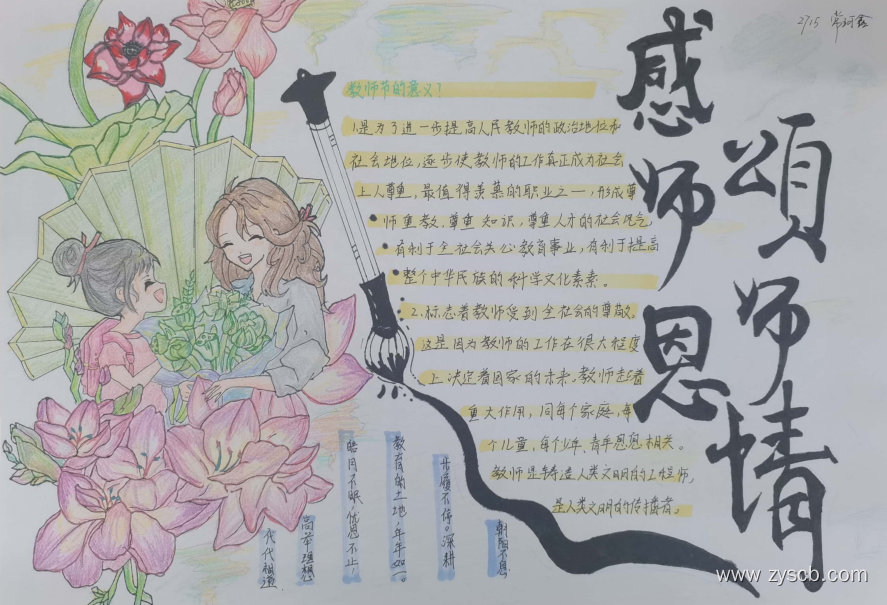 2715 常珂鑫
感师恩
頌师情
教师节的意义?
1.是为了进一步提高人民教师的政治地位和
社会地位,逐步使教师的工作真正成为社会
上人尊重,最值得羡慕的职业之一,形成尊
师重教,尊重知识,尊重人才的社会风气,
有利于全社会关心教育事业,有利于提高
整个中华民族的科学文化素素。
2.标志着教师受到全社会的尊敬。
这是因为教师的工作在很大程度
上决定着国家的未来。教师起着
重大作用,同每个家庭,每
个儿童,每个少年、青年息息相关。
教师是铸造人类文明的工程师,
是人类文明的传播者。
朝阳不息
丹履不停。深耕
教育的土地,年年如一。
皓月不眠,忧思不止,
高举理想
代代相逢
www.zyscb.com